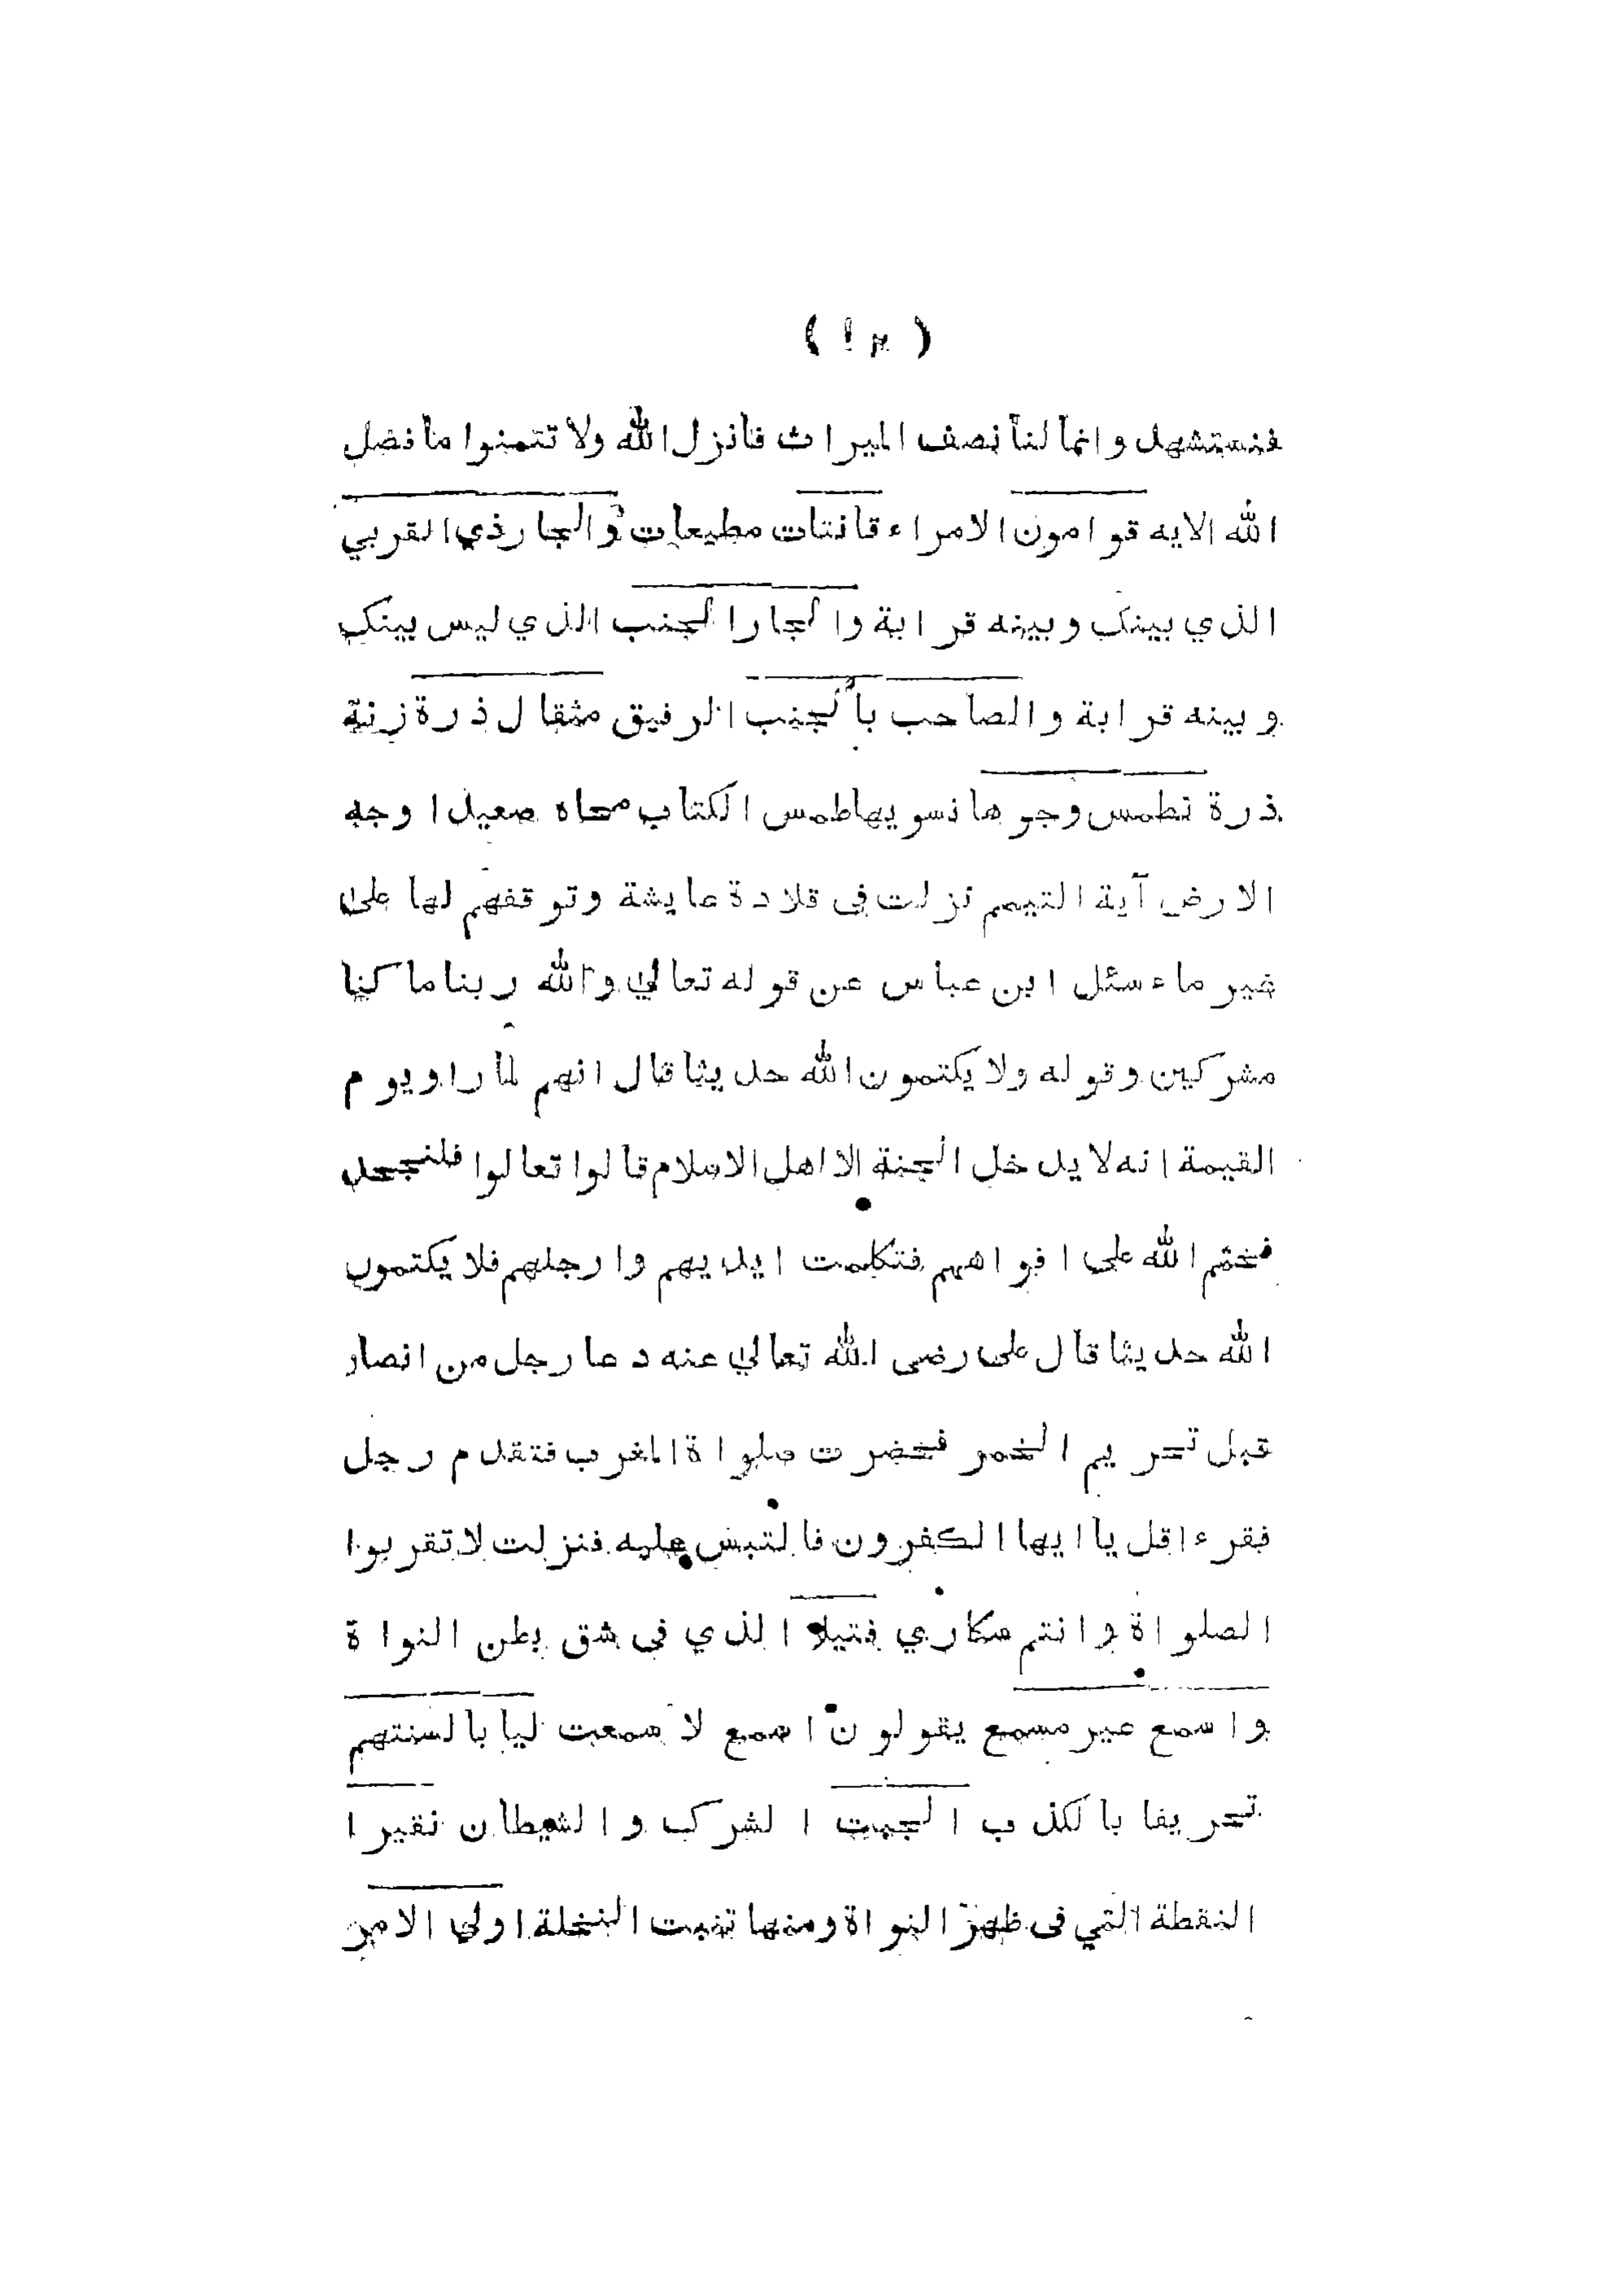 فنستشهد وانما لنا نصف الميراث فانزل الله ولا تتمنوا ما فضل
الله الايه قوامون الامراء قانتات مطيعات والجار ذي القربي
الذي بينك وبينه قرابة والجار الجنب الذي ليس بينك
وبينه قرابة والصاحب بالجنب الرفيق مثقال ذرة زنة
ذرة نطمس وجوها نسويها طمس الكتاب محاه صعيدا وجه
الارض آية التيمم نزلت في قلادة عايشة وتوقفهم لها على
غير ماء سئل ابن عباس عن قوله تعالي والله ربنا ما كنا
مشركين وقوله ولا يكتمون الله حديثا قال انهم لما راو يوم
القيمة انه لا يدخل الجنة الا اهل الاسلام قالوا تعالوا فلنجحد
فختم الله على افواههم فتكلمت ايديهم وارجلهم فلا يكتمون
الله حديثا قال على رضى الله تعالي عنه دعا رجل من انصار
قبل تحريم الخمر فحضرت صلواة المغرب فتقدم رجل
فقرء اقل يا ايها الكفرون فالتبس عليه فنزلت لا تقربوا
الصلواة وانتم سكاري فتيلا الذي فى شق بطن النواة
واسمع غير مسمع يقولون اسمع لا سمعت ليا بالسنتهم
تحريفا بالكذب الجبت الشرك والشيطان نقيرا
النقطة التي فى ظهر النواة ومنها تنبت النخلة اولي الامر